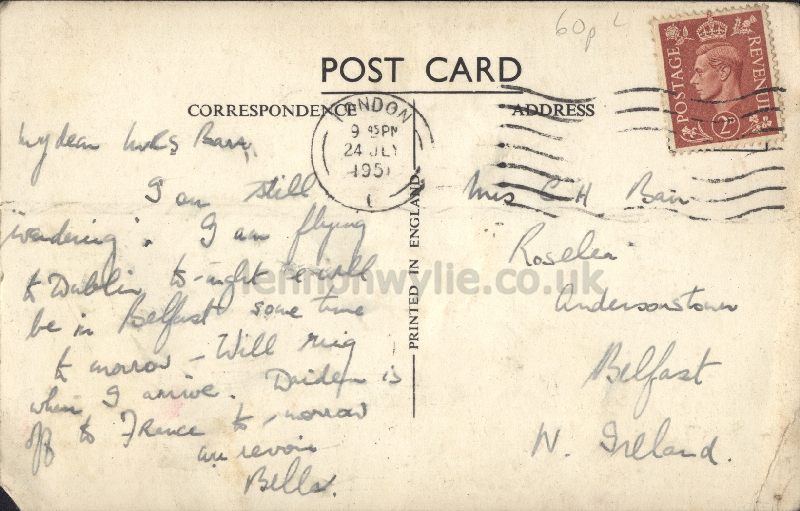 60p
POST CARD
CORRESPONDENCE
ADDRESS
LONDON
9 45 PM
24 JLY
1951
POSTAGE
REVENUE
2D
PRINTED IN ENGLAND
lennonwylie.co.uk
My dear Mrs Barr,
I am still
"wandering". I am flying
to Dublin to-night & will
be in Belfast some time
to morrow - Will ring
when I arrive. is
off to France to-morrow
au revoir
Bella.
Mrs C H Barr
Roselea
Andersonstown
Belfast
N. Ireland.